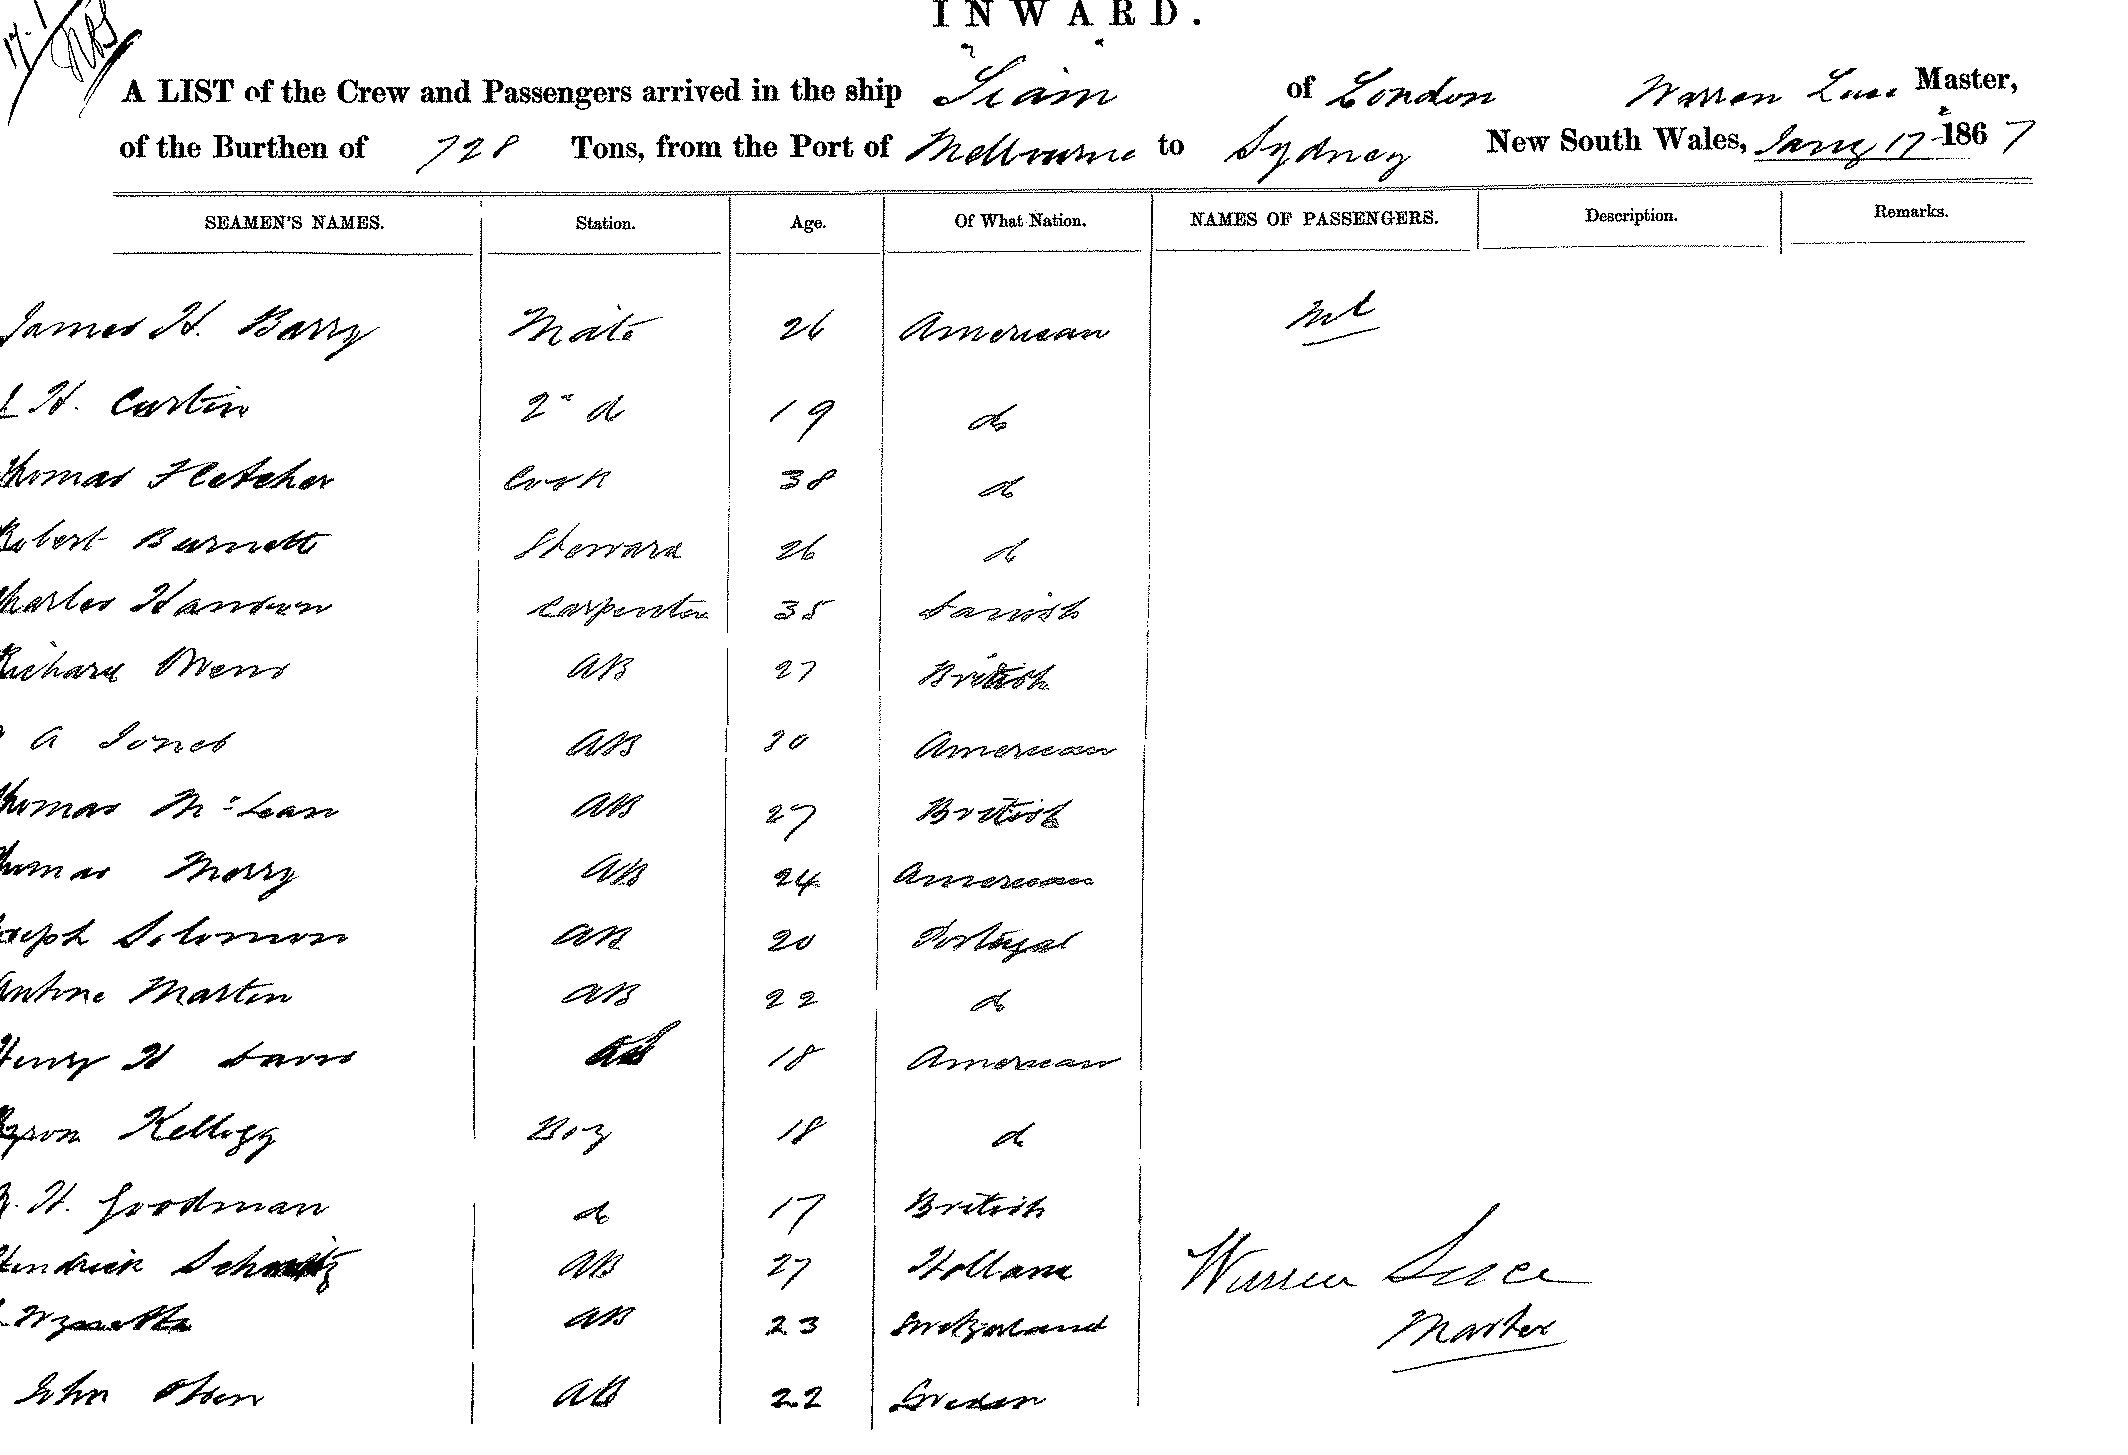 INWARD.
A LIST of the Crew and Passengers arrived in the ship Siam of London Warren Luce Master,
of the Burthen of 728 Tons, from the Port of Melbourne to Sydney New South Wales, Jany 17 1867
SEAMEN'S NAMES. Station. Age. Of What Nation. NAMES OF PASSENGERS. Description. Remarks.
James H. Barry Mate 26 American Nil
H. Curtin 2nd do 19 do
Thomas Fletcher Cook 38 do
Robert Burnett Steward 26 do
Charles Hansen Carpenter 35 Danish
Richard Owens AB 27 British
A Jones AB 30 American
Thomas McLean AB 27 British
Thomas Merry AB 24 American
Joseph Solomon AB 20 Portugal
Antone Martin AB 22 do
Henry H Davis 18 American
Byron Kellogg Boy 18 do
H. Goodman do 17 British
Hendrick Schmitz AB 27 Holland
AB 23 Switzerland
John Olsen AB 22 Sweden
Warren Luce
Master